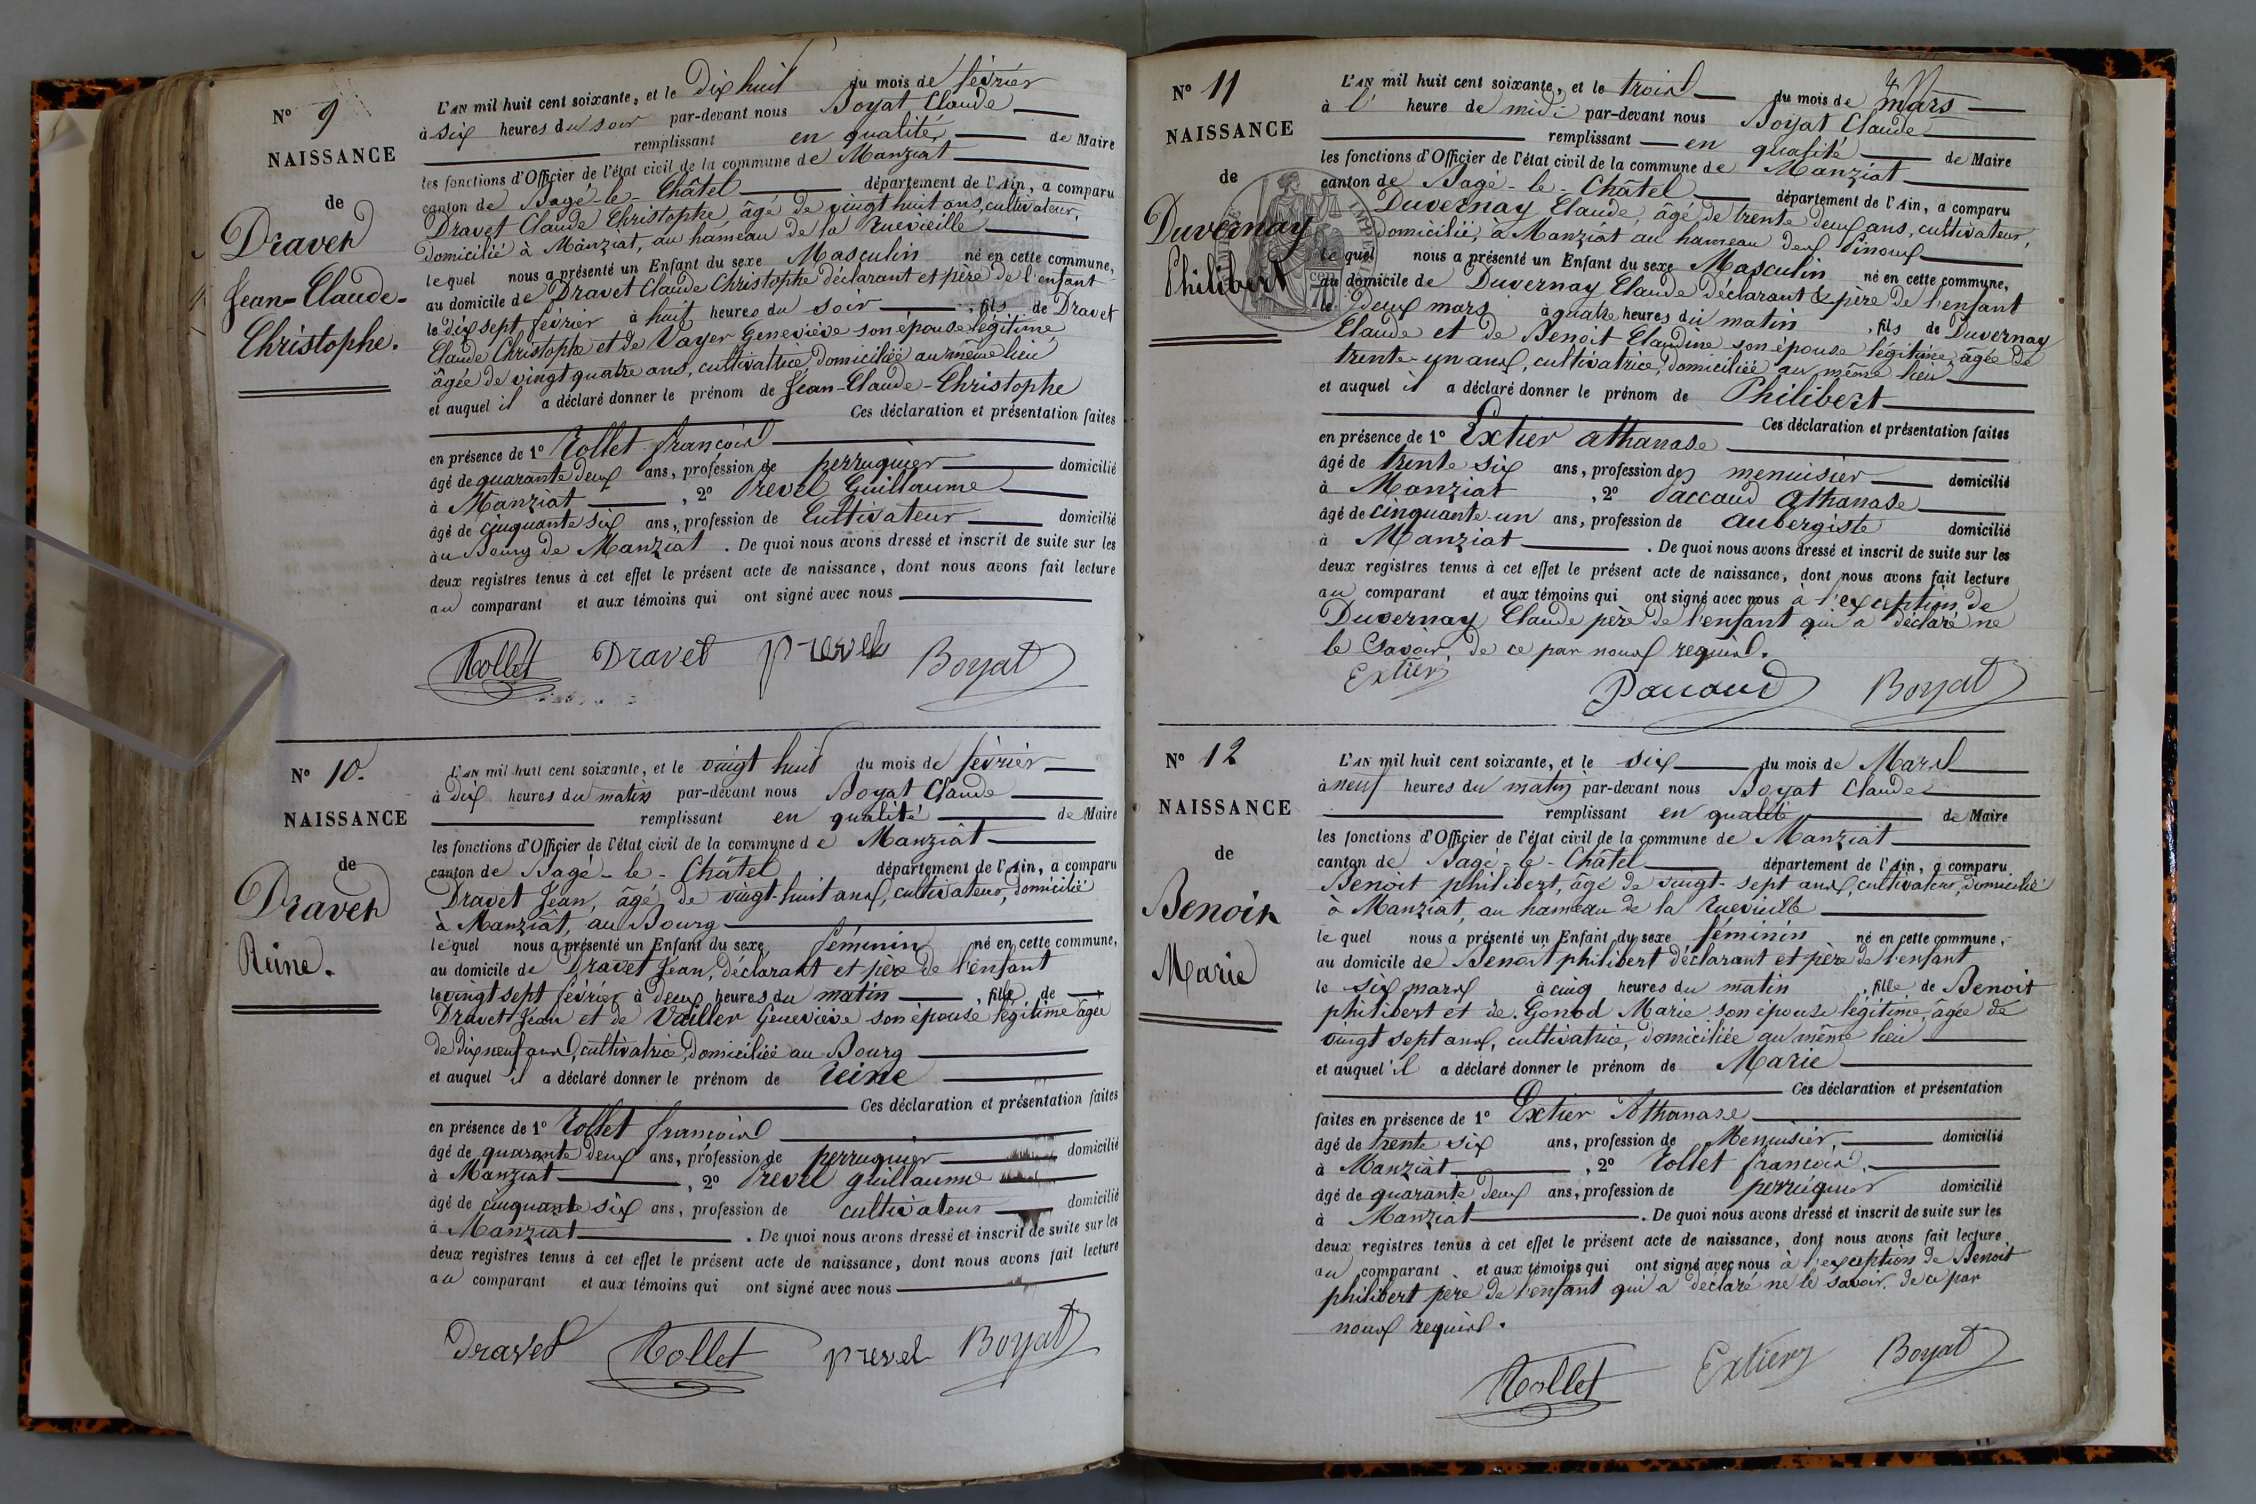 N° 9
NAISSANCE
de
Dravet
Jean-Claude-
Christophe.
L'AN mil huit cent soixante, et le Dix huit du mois de février
à six heures du soir par-devant nous Boyat Claude
remplissant en qualité de Maire
les fonctions d'Officier de l'état civil de la commune de Manziat
canton de Bagé-le-Châtel département de l'Ain, a comparu
Dravet Claude Christophe, âgé de vingt huit ans, cultivateur,
domicilié à Manziat, au hameau de la Ruevieille
lequel nous a présenté un Enfant du sexe Masculin né en cette commune,
au domicile de Dravet Claude Christophe déclarant et père de l'enfant
le dix sept février à huit heures du soir, fils de Dravet
Claude Christophe et de Voyer Geneviève son épouse légitime
âgée de vingt quatre ans, cultivatrice, domiciliée au même lieu
et auquel il a déclaré donner le prénom de Jean-Claude-Christophe
Ces déclaration et présentation faites
en présence de 1° Rollet françois
âgé de quarante deux ans, profession de perruquier domicilié
à Manziat, 2° Prevel Guillaume
âgé de cinquante six ans, profession de Cultivateur domicilié
au Bourg de Manziat. De quoi nous avons dressé et inscrit de suite sur les
deux registres tenus à cet effet le présent acte de naissance, dont nous avons fait lecture
au comparant et aux témoins qui ont signé avec nous
Rollet Dravet prevel Boyat
N° 10.
NAISSANCE
de
Dravet
Reine.
L'AN mil huit cent soixante, et le vingt huit du mois de février
à dix heures du matin par-devant nous Boyat Claude
remplissant en qualité de Maire
les fonctions d'Officier de l'état civil de la commune de Manziat
canton de Bagé-le-Châtel département de l'Ain, a comparu
Dravet Jean, âgé de vingt-huit ans, cultivateur, domicilié
à Manziat, au Bourg
lequel nous a présenté un Enfant du sexe féminin né en cette commune,
au domicile de Dravet Jean, déclarant et père de l'enfant
le vingt sept février à deux heures du matin, fille de
Dravet Jean et de Vailler Geneviève son épouse légitime âgée
de dix neuf ans, cultivatrice, domiciliée au Bourg
et auquel il a déclaré donner le prénom de reine
Ces déclaration et présentation faites
en présence de 1° Rollet françois
âgé de quarante deux ans, profession de perruquier domicilié
à Manziat, 2° Prevel guillaume
âgé de cinquante six ans, profession de cultivateur domicilié
à Manziat. De quoi nous avons dressé et inscrit de suite sur les
deux registres tenus à cet effet le présent acte de naissance, dont nous avons fait lecture
au comparant et aux témoins qui ont signé avec nous
Dravet Rollet prevel Boyat
N° 11
NAISSANCE
de
Duvernay
Philibert
L'AN mil huit cent soixante, et le trois du mois de mars
à l' heure de midi par-devant nous Boyat Claude
remplissant en qualité de Maire
les fonctions d'Officier de l'état civil de la commune de Manziat
canton de Bagé-le-Châtel département de l'Ain, a comparu
Duvernay Claude, âgé de trente deux ans, cultivateur,
domicilié, à Manziat au hameau des Pinoux
lequel nous a présenté un Enfant du sexe Masculin né en cette commune,
au domicile de Duvernay Claude déclarant & père de l'enfant
le deux mars à quatre heures du matin, fils de Duvernay
Claude et de Benoit Claudine son épouse légitime, âgée de
trente-un ans, cultivatrice, domiciliée au même lieu
et auquel il a déclaré donner le prénom de Philibert
Ces déclaration et présentation faites
en présence de 1° Extier athanase
âgé de trente six ans, profession de menuisier domicilié
à Manziat, 2° Paccaud athanase
âgé de cinquante-un ans, profession de aubergiste domicilié
à Manziat. De quoi nous avons dressé et inscrit de suite sur les
deux registres tenus à cet effet le présent acte de naissance, dont nous avons fait lecture
au comparant et aux témoins qui ont signé avec nous à l'exception de
Duvernay Claude père de l'enfant qui a déclaré ne
le Savoir, de ce par nous requis.
Extier Paccaud Boyat
N° 12
NAISSANCE
de
Benoit
Marie
L'AN mil huit cent soixante, et le six du mois de Mars
à neuf heures du matin par-devant nous Boyat Claude
remplissant en qualité de Maire
les fonctions d'Officier de l'état civil de la commune de Manziat
canton de Bagé-le-Châtel département de l'Ain, a comparu
Benoit philibert, âgé de vingt-sept ans, cultivateur, domicilié
à Manziat, au hameau de la ruevieille
lequel nous a présenté un Enfant du sexe féminin né en cette commune,
au domicile de Benoit philibert déclarant et père de l'enfant
le six mars à cinq heures du matin, fille de Benoit
philibert et de Gonod Marie son épouse légitime, âgée de
vingt sept ans, cultivatrice, domiciliée au même lieu
et auquel il a déclaré donner le prénom de Marie
Ces déclaration et présentation
faites en présence de 1° Extier Athanase
âgé de trente six ans, profession de Menuisier, domicilié
à Manziat, 2° Rollet françois,
âgé de quarante deux ans, profession de perruquier domicilié
à Manziat. De quoi nous avons dressé et inscrit de suite sur les
deux registres tenus à cet effet le présent acte de naissance, dont nous avons fait lecture
au comparant et aux témoins qui ont signé avec nous à l'exception de Benoit
philibert père de l'enfant qui a déclaré ne le savoir, de ce par
nous requis.
Rollet Extier Boyat